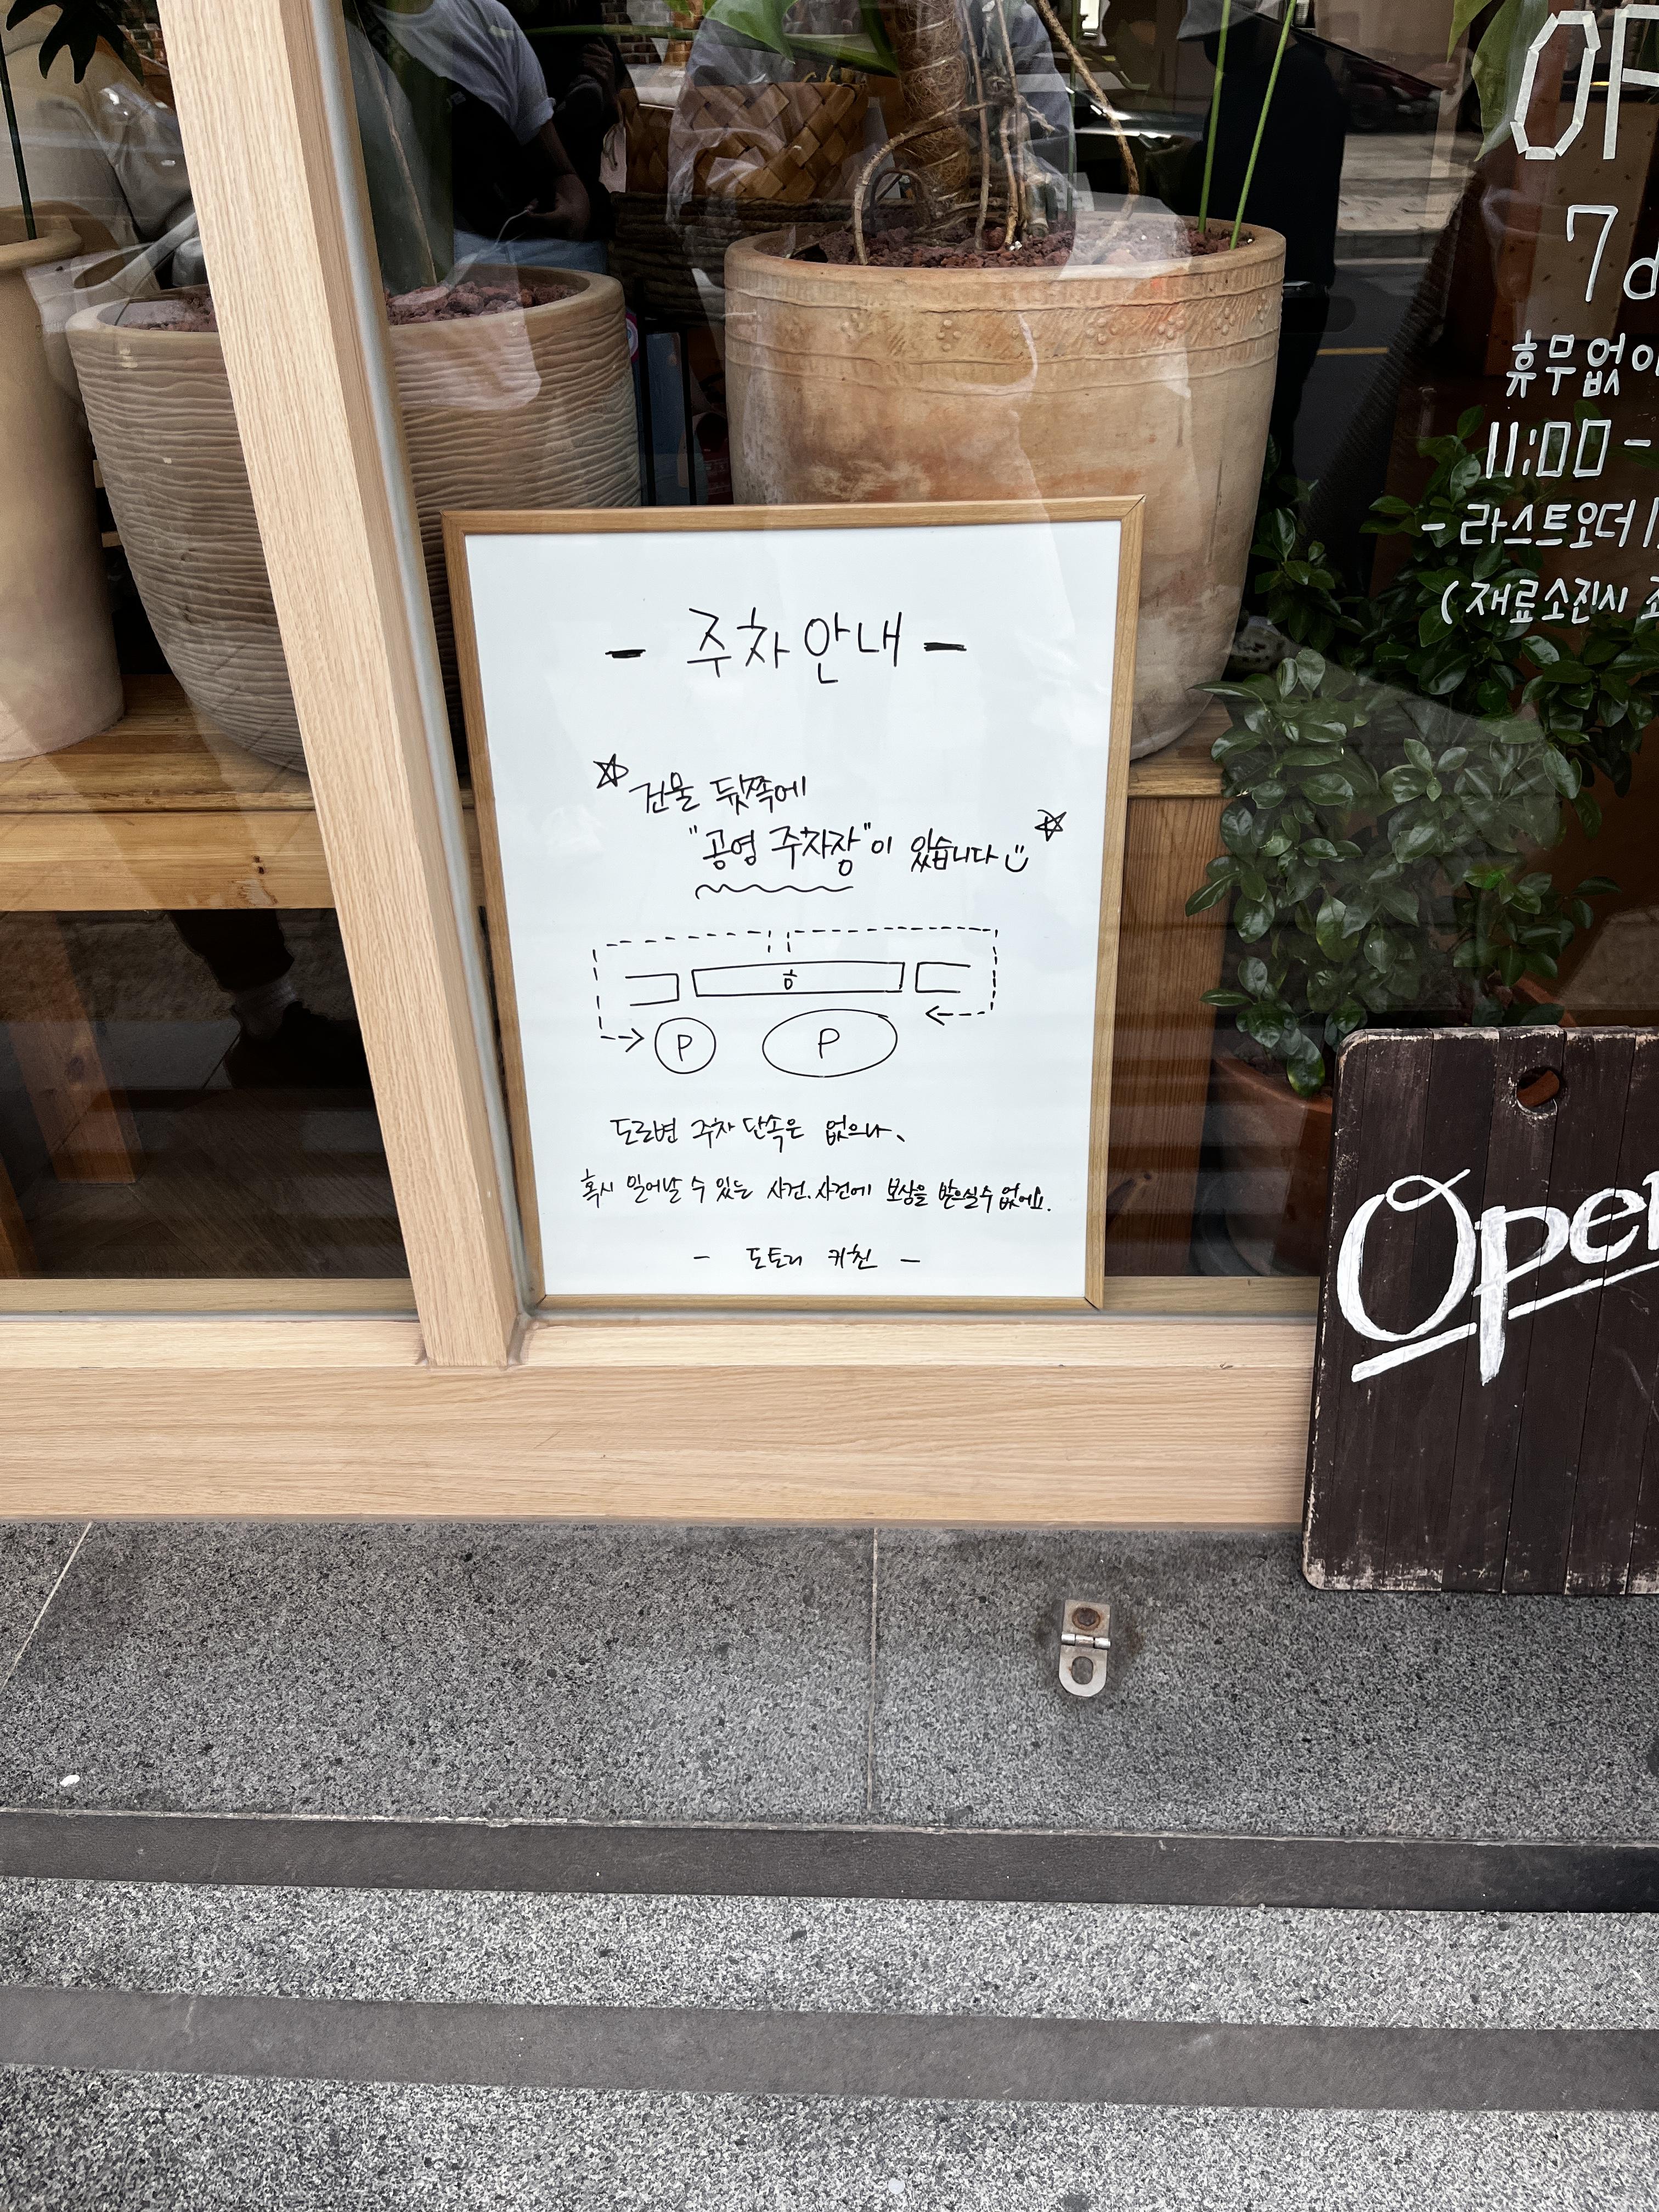 - 주차안내 -
☆ 건물 뒷쪽에
"공영 주차장"이 있습니다 ☆
ㅎ
P P
도로변 주차 단속은 없으나,
혹시 일어날 수 있는 사건.사건에 보상을 받으실 수 없어요.
- 도토리 키친 -
7
휴무없이
11:00 -
- 라스트오더
( 재료소진시
Open